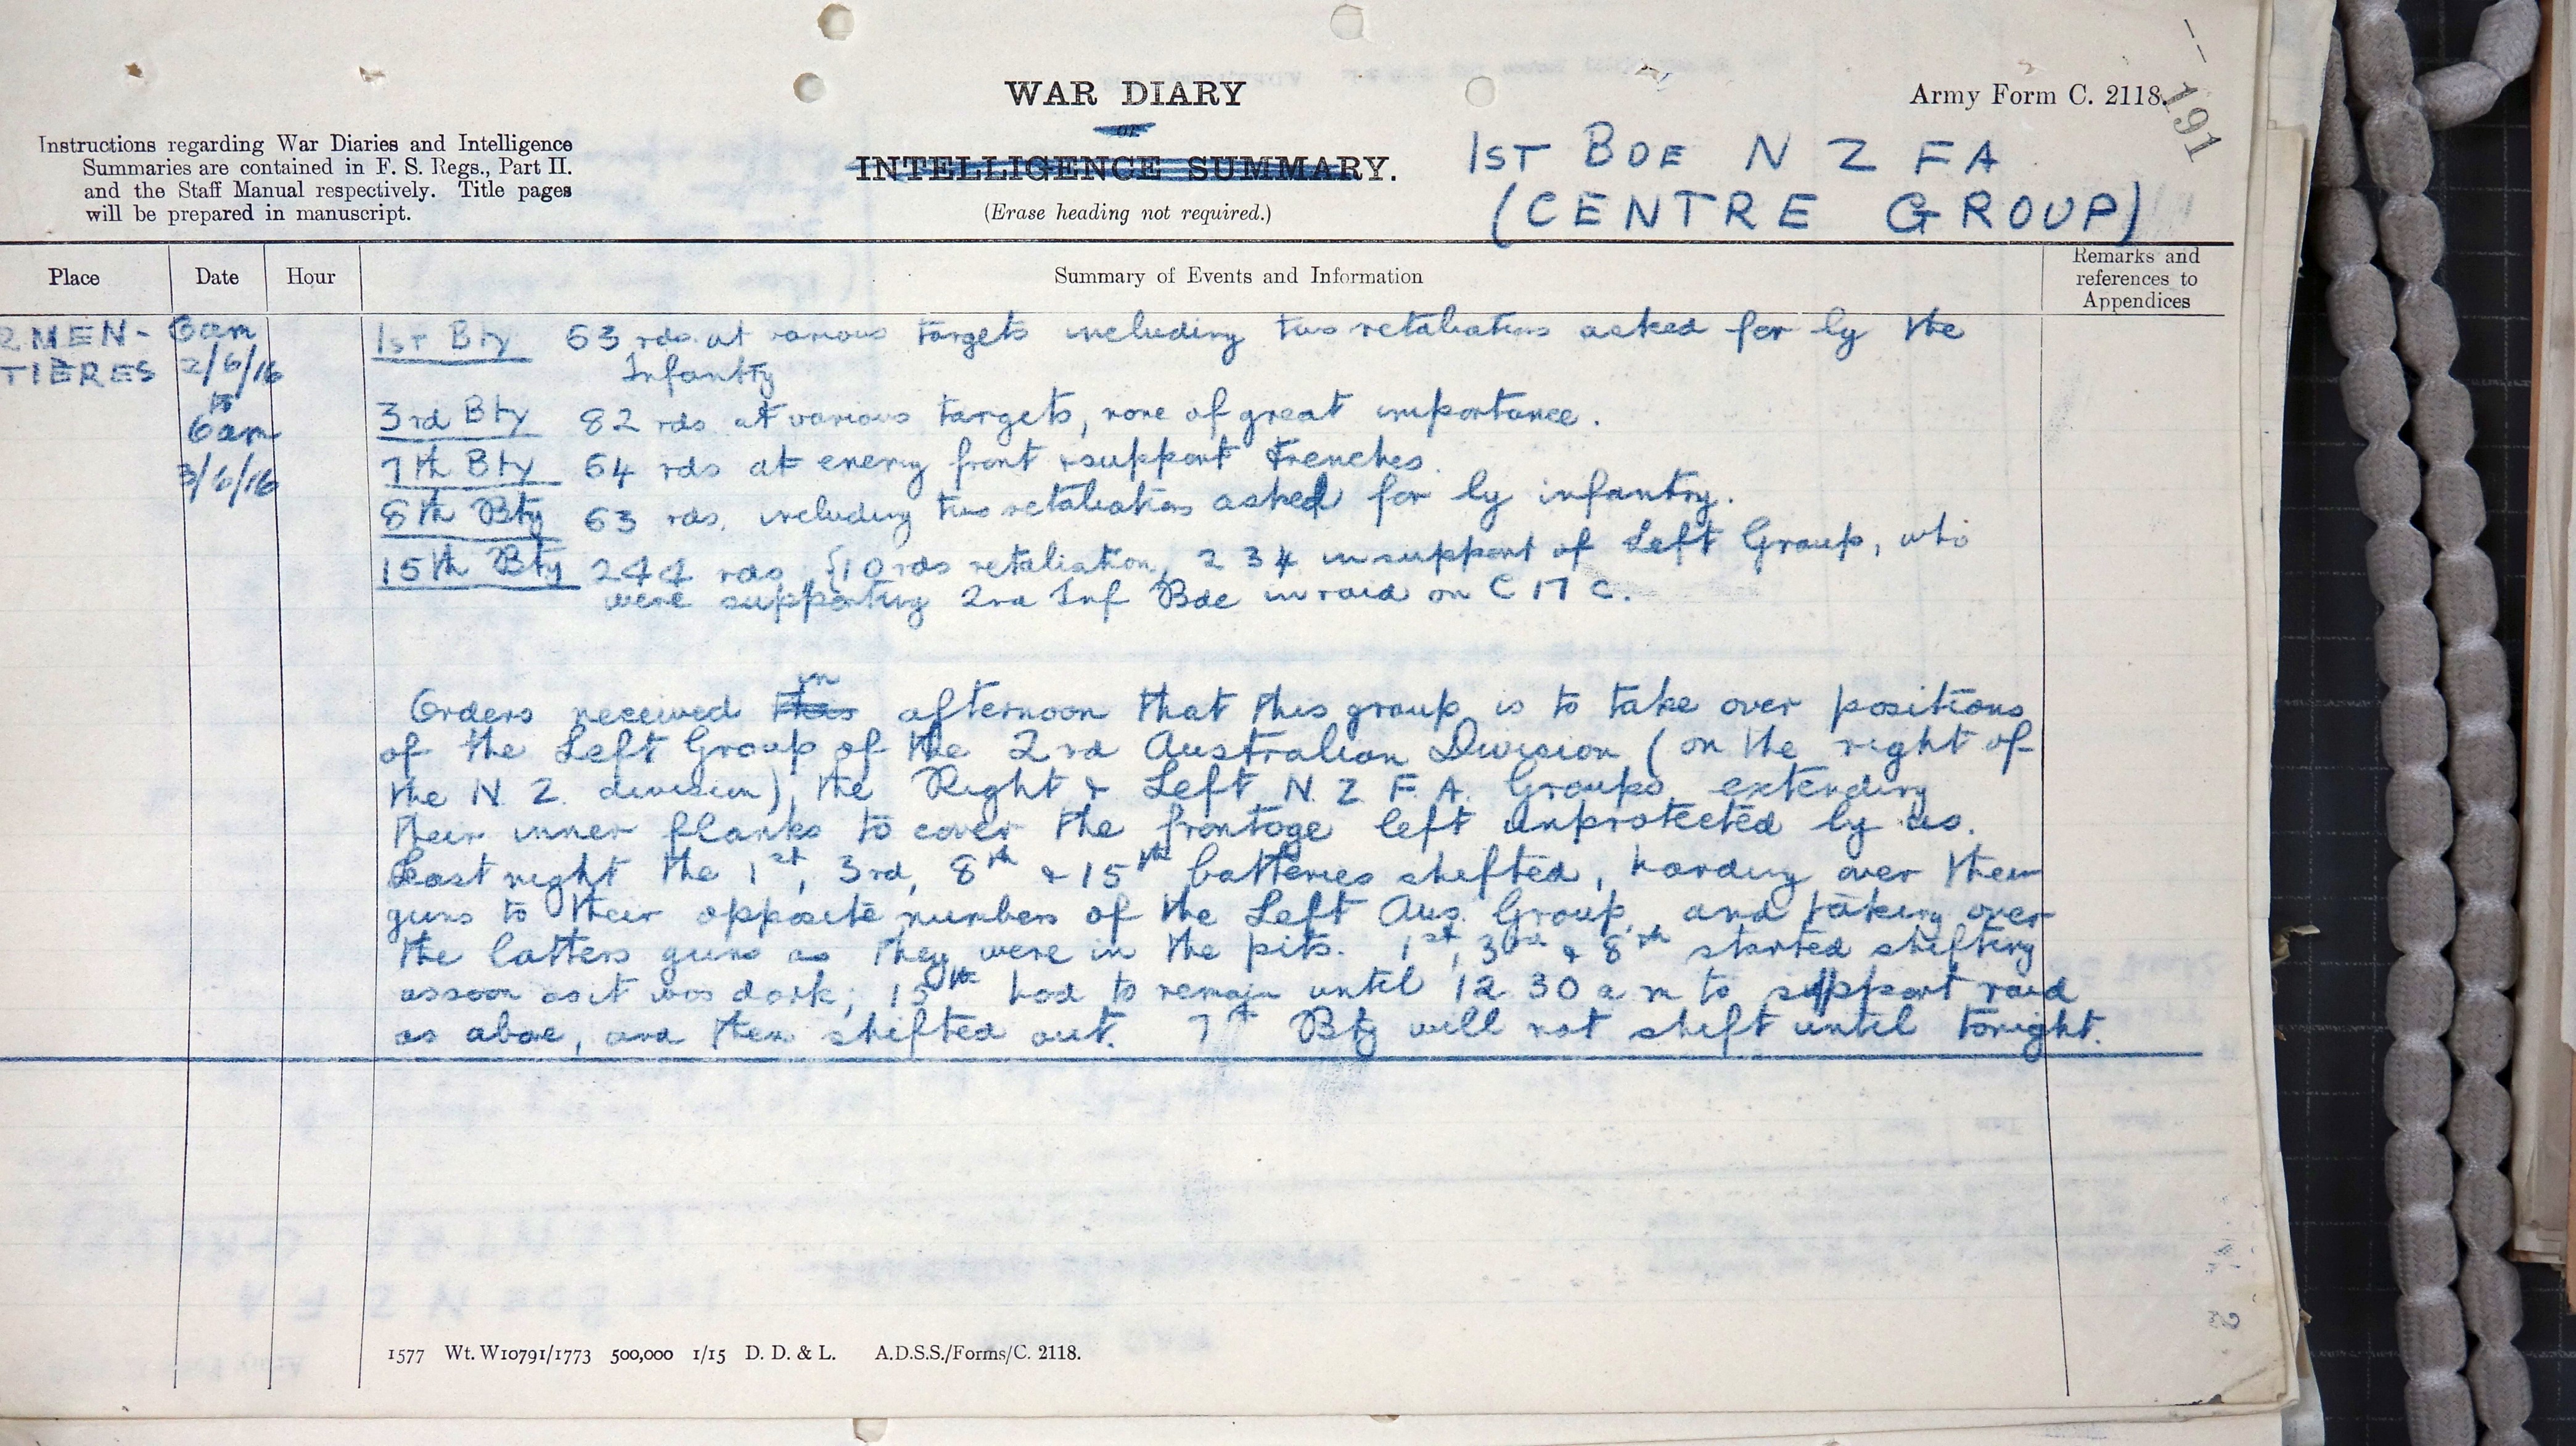 WAR DIARY
or
INTELLIGENCE SUMMARY.
(Erase heading not required.)
Army Form C. 2118.
191
Instructions regarding War Diaries and Intelligence
Summaries are contained in F. S. Regs., Part II.
and the Staff Manual respectively. Title pages
will be prepared in manuscript.
1ST BDE N Z F A
(CENTRE GROUP)
Place
Date
Hour
Summary of Events and Information
Remarks and
references to
Appendices
RMEN-
TIERES
6am
2/6/16
to
6am
3/6/16
1st Bty 63 rds. at various targets including two retaliations asked for by the
Infantry
3rd Bty 82 rds at various targets, none of great importance.
7th Bty 64 rds at enemy front & support trenches.
8th Bty 63 rds, including two retaliations asked for by infantry.
15th Bty 244 rds {10 rds retaliation, 234 in support of Left Group, who
were supporting 2nd Inf Bde in raid on C 17 C.
Orders received in afternoon that this group is to take over positions
of the Left Group of the 2nd Australian Division (on the right of
the N. Z. division), the Right & Left N. Z. F. A. Groups extending
their inner flanks to cover the frontage left unprotected by us.
Last night the 1st, 3rd, 8th & 15th batteries shifted, handing over their
guns to their opposite numbers of the Left Aus. Group, and taking over
the latters guns as they were in the pits. 1st, 3rd & 8th started shifting
as soon as it was dark; 15th had to remain until 12 30 a m to support raid
as above, and then shifted out. 7th Bty will not shift until tonight.
1577 Wt. W10791/1773 500,000 1/15 D. D. & L. A.D.S.S./Forms/C. 2118.